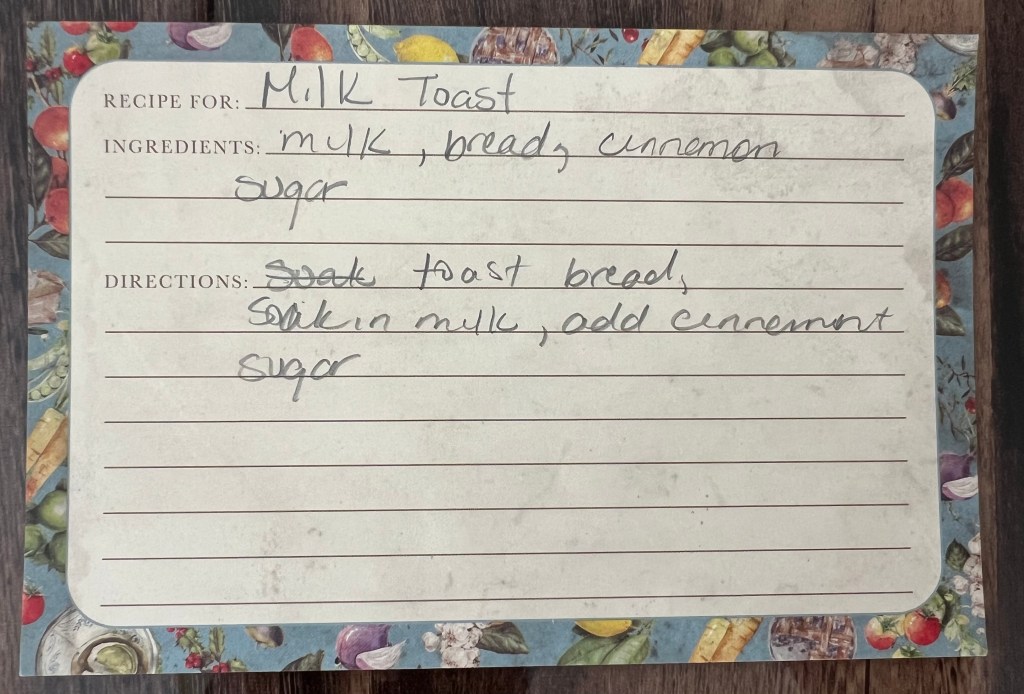 RECIPE FOR: Milk Toast
INGREDIENTS: milk, bread, cinnemon
sugar
DIRECTIONS: ~~Soak~~ toast bread,
Soak in milk, add cinnemont
sugar